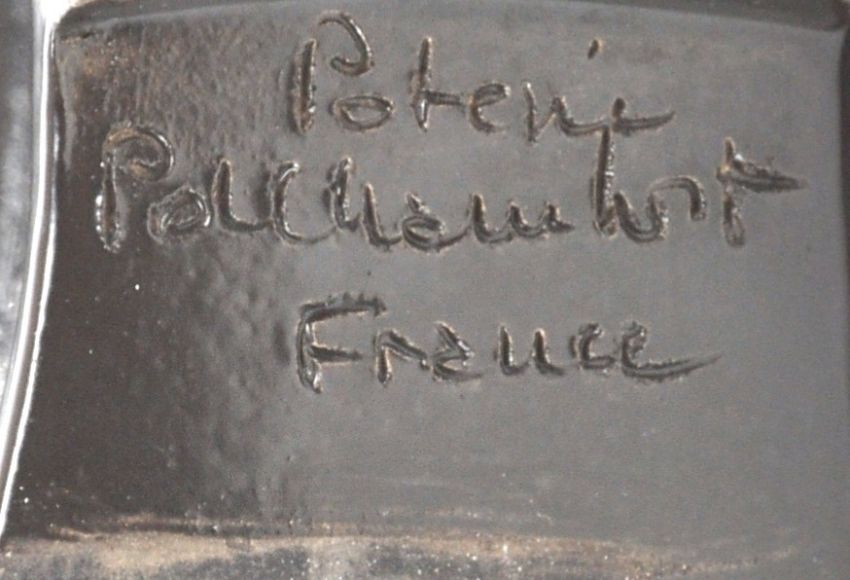 Poterie
Pol Chambost
France